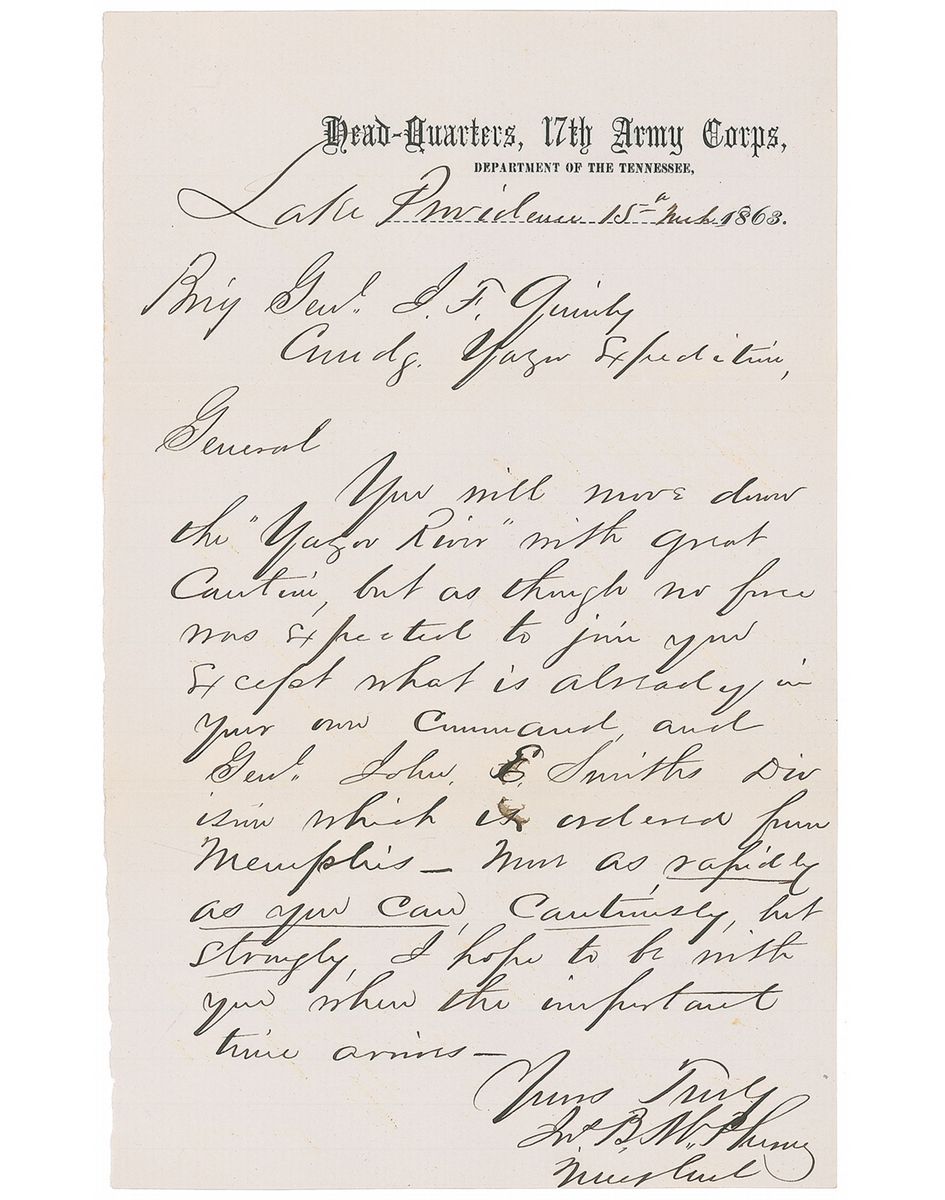 Head-Quarters, 17th Army Corps,
DEPARTMENT OF THE TENNESSEE,
Lake Providence 15th Mch 1863.
Brig Genl. I. F. Quinby
Cmdg. Yazoo Expedition,
General
You will move down
the "Yazoo River" with great
Caution, but as though no force
was Expected to join you
Except what is already in
your own Command, and
Genl. John. E. Smiths Div
ision which is ordered from
Memphis — Move as rapidly
as you Can, Cautiously, but
Strongly, I hope to be with
you when the important
time arrives —
Yours Truly
Jas. B. McPherson
Maj Genl